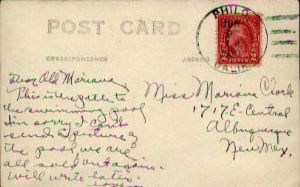 POST CARD
CORRESPONDENCE
PHILO
CALIF
Dear Old Mariana
This is the path to
the swimming pool
I'm sorry I can't
send a picture of
the pool we are
all sold out again.
Will write later.
Miss Marian Clark
1717 E-Central
Albuquerque
New Mex.